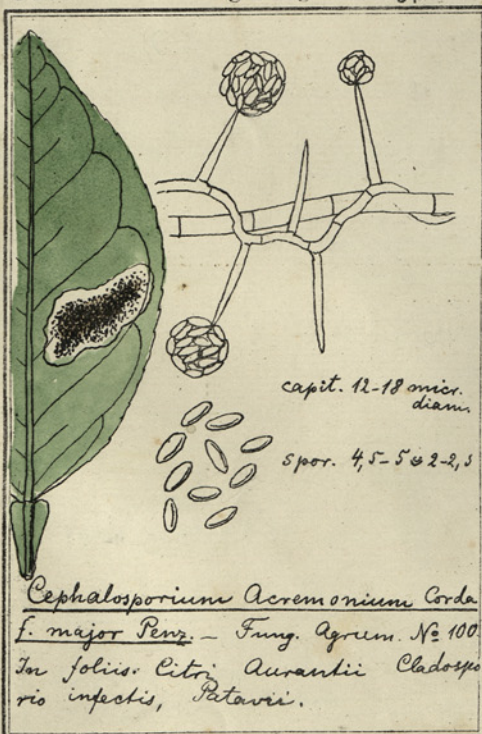 capit. 12-18 micr.
diam.
spor. 4,5-5 2-2,5
Cephalosporium Acremonium Corda
f. major Penz. — Fung. Agrum. No 100.
In foliis Citri Aurantii Cladospo
rio infectis, Patavii.